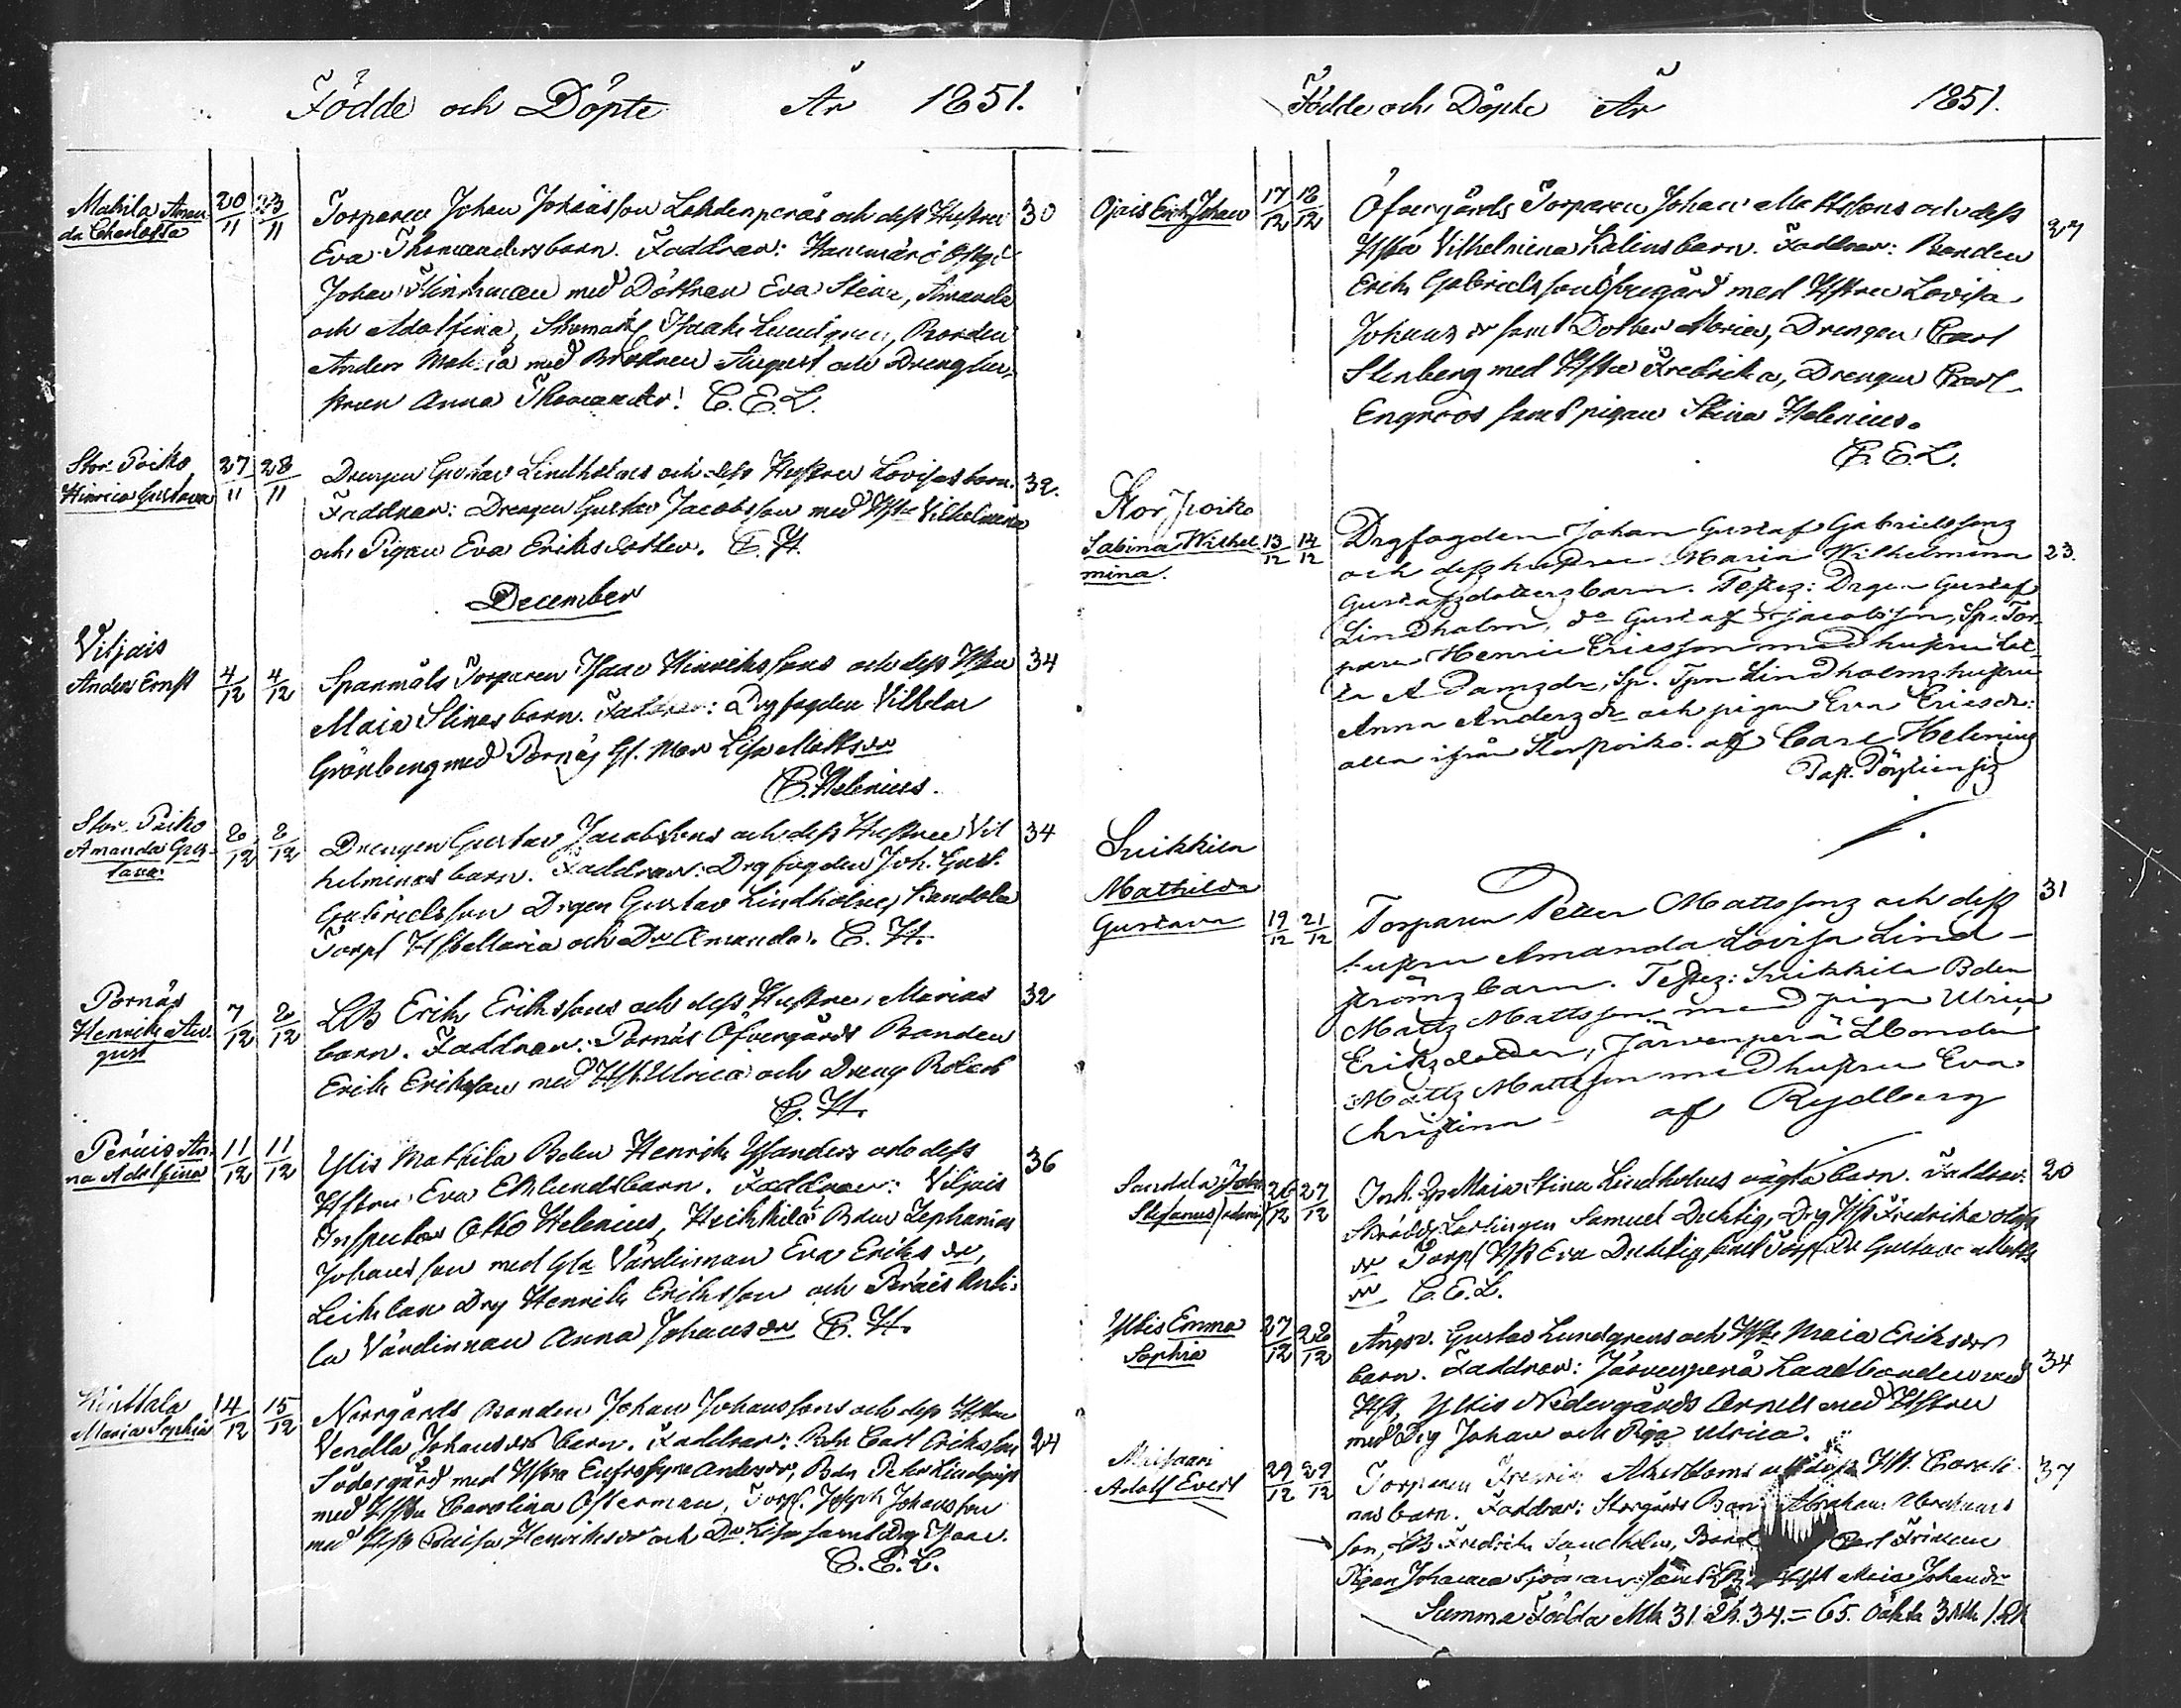 Födde och Döpte År 1851.
Mahila Aman-
da Charlotta
20/11 23/11
Torparen Johan Johansson Lehdenperäs och dess Hustru 30
Eva Thomandersbarn. Faddrar:
Johan med Döttren Eva Stina, Amanda
och Adolfina, Skomak. Isaak Lundgren, Bonden
Anders med Brodren August och Dreng hu-
strun Anna Thomander. C. E. L.
Stor Poiko
Hinrica Gustava
27/11 28/11
Drengen Gustav Lindholms och dess Hustru Lovisas barn. 32.
Faddrar: Drengen Gustav Jacobsson med Hstu Vilhelmina
och Pigan Eva Eriksdotter. C. H.
December
Viljais
Anders Ernst
4/12 4/12
Spanmåls Torparen Isaac Hinrikssons och dess Hstru 34
Maja Stinas barn. Faddrar: Drgfogden Vilhelm
Grönberg med Pornäs Gl. Mor Lisa Mattsdr
C. Helenius.
Stor Poiko
Amanda Gus-
tava
2/12
Drengen Gustav Jacobssons och dess Hustru Vil 34
helminas barn. Faddrar: Drgfogden Joh. Gust.
Gabrielsson Drgen Gustav Lindholm, Sandola
Torps Hst Maria och Dr Amanda. C. H.
Pornäs
Henrik Au-
gust
7/12 8/12
LB Erik Erikssons och dess Hustru Marias 32
barn. Faddrar: Pornäs Öfvergårds Bonden
Erik Eriksson med Hst. Ulrica och Dreng Robert
C. H.
Peräis An-
na Adolfina
11/12 11/12
Ylis Mattila Bden Henrik Ysanders och dess 36
Hstru Eva Eklundsbarn. Faddrar: Viljais
Inspector Otto Helenius, Heikkilä Bden Zephanias
Johansson med Gla Värdinnan Eva Eriks dr,
Leikilan Drg Henrik Eriksson och Peräis Anti-
la Värdinnan Anna Johans dr C. H.
Kinttala
Maria Sophia
14/12 15/12
Norrgårds Bonden Johan Johanssons och dess Hstru
Vendla Johansdrs barn. Faddrar: Bdn Carl Eriksson 24
Södergård med Hstru Eufrosyne Andersdr, Bdn Petter Lindqvist
med Hstru Carolina Österman, Torp. Joseph Johansson
med Hst Caisa Henriksdr och Dr Lisa samt Drg Isaac.
C. E. L.
Födde och Döpte År 1851.
Ojais Erik Johan
17/12 18/12
Öfvergårds Torparen Johan Mattssons och dess
Hstru Vilhelmina Halins barn. Faddrar: Bonden 27
Erik Gabrielsson med Hstru Lovisa
Johans dr samt Dotter Maria, Drengen Carl
Stenberg med Hstru Fredrika, Drengen Carl
Engroos samt pigan Stina Helenius.
C. E. L.
Stor Poiko
Sabina Wilhel
mina.
13/12 14/12
Drgfogden Johan Gustaf Gabrielssons
och dess hustru Maria Wilhelmina 23.
Gustafsdotters barn. Testes: Drgen Gustaf
Lindholm, do Gustaf Jacobsson, Sp. Tor-
paren Henric Ericsson med hustru Lot-
ta Adamsdr, Sp. Tpn Lindholms hustru
Anna Andersdr och pigan Eva Ericsdr:
alla ifrån Storpoiko. af Carl Helenius
Past.
Suikkila
Mathilda
Gustava
19/12 21/12
Torparen Petter Mattssons och dess 31
hustru Amanda Lovisa Lind-
ströms barn. Testes: Suikkila Bden
Matts Mattsson med pigan Ulrica
Eriksdotter, Järvenperä LBonden
Matts Mattsson med hustru Eva
Christina af Rydberg
Sandala Joh
Stefanus
26/12 27/12
Inh. Maja Stina Lindholms oägta barn. Faddrar: 20
Skrädd. Lärlingen Samuel Duktig, Drg Hst Fredrika
dr Torp Hst Eva Duktig samt Torp Dr Gustava Matts
dr C. E. L.
Yltis Emma
Sophia
27/12 28/12
Gustav Lundgrens och Hstru Maia Eriksdrs
barn. Faddrar: Järvenperä Landbonden med 34
Hst, Yltis Nedergårds Arnelt med Hstru
med Drg Johan och Piga Ulrica.
Adolf Evert
29/12 29/12
Torparen Åkerbloms och dess Hst. Caroli 37
nas barn. Faddrar: Storgårds Bon Abraham Abrahams
son, LB Fredrik Sandholm, Bond Carl Friman
Pigan Johanna samt Hst Maia Johansdr
Summa Födda Mk 31. Qk. 34. = 65. Oäkta 3 Mk 1. Qk